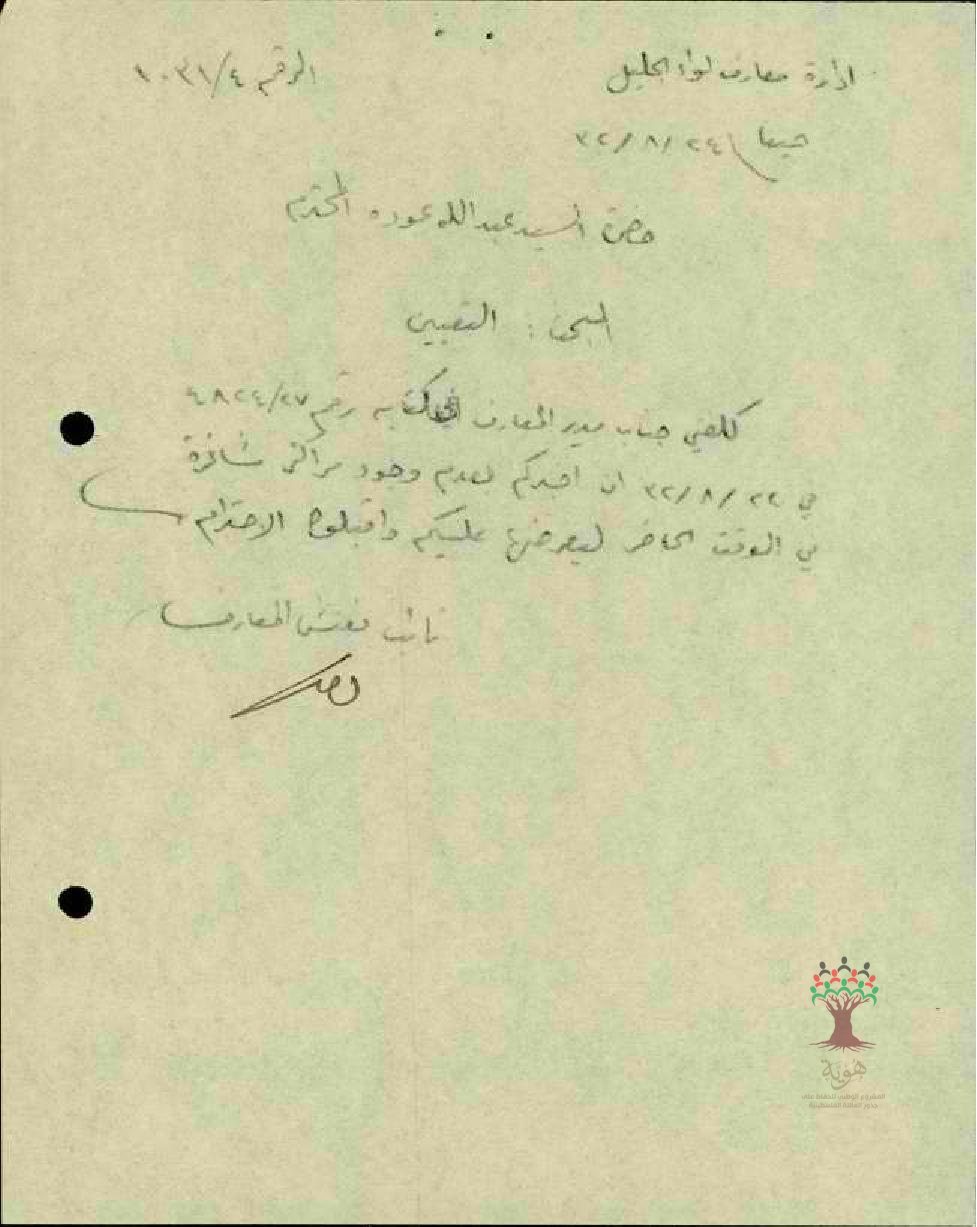 ادارة معارف لواء الجليل الرقم ١٠٣١/٤
حيفا ٣٢/٨/٢٤
حضرة السيد عبدالله عوده المحترم
المبحث : التعيين
كلفني جناب مدير المعارف كتابه رقم ٤٨٢٤/٢٧
في ٣٢/٨/٢٢ ان اخبركم بعدم وجود مراكز شاغرة
في الوقت الحاضر ليعرضها عليكم واقبلوا الاحترام
نائب مفتش المعارف
هوية
المشروع الوطني للحفاظ على
جذور العائلة الفلسطينية